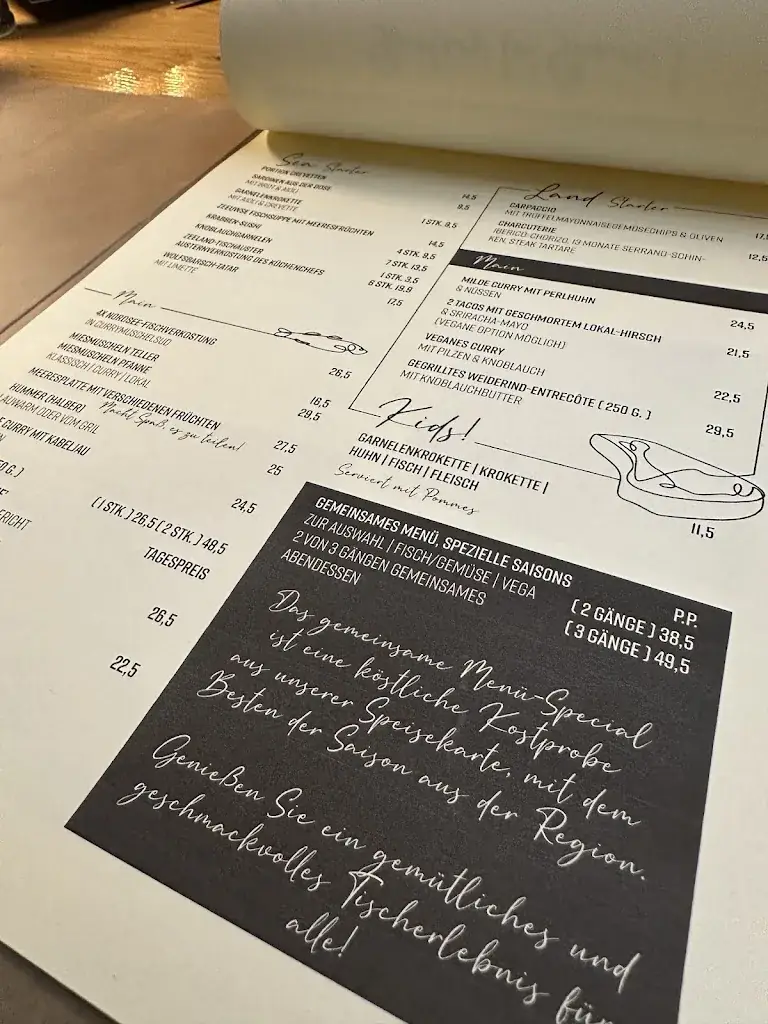 Sea Starter
PORTION CREVETTEN
SARDINEN AUS DER DOSE
MIT BROT & AIOLI
14,5
GARNELENKROKETTE
9,5
MIT AIOLI & CREVETTE
ZEEUWSE FISCHSUPPE MIT MEERESFRÜCHTEN
1 STK. 9,5
KRABBEN-SUSHI
14,5
KNOBLAUCHGARNELEN
4 STK. 9,5
ZEELAND-TISCHAUSTER
7 STK. 13,5
AUSTERNVERKOSTUNG DES KÜCHENCHEFS
1 STK. 3,5
6 STK. 19,9
WOLFSBARSCH-TATAR
MIT LIMETTE
17,5
Main
4X NORDSEE-FISCHVERKOSTUNG
IN CURRYMUSCHELSUD
26,5
MIESMUSCHELN TELLER
MIESMUSCHELN PFANNE
KLASSISCH | CURRY | LOKAL
16,5
29,5
MEERESPLATTE MIT VERSCHIEDENEN FRÜCHTEN
Macht Spaß, es zu teilen!
27,5
HUMMER (HALBER)
LAUWARM ODER VOM GRIL
25
CURRY MIT KABELJAU
24,5
0 G. ]
[ 1 STK. ] 26,5 [ 2 STK. ] 48,5
TAGESPREIS
ERICHT
26,5
22,5
Land Starter
CARPACCIO
MIT TRÜFFELMAYONNAISEGEMÜSECHIPS & OLIVEN
CHARCUTERIE
IBERICO-CHORIZO, 19 MONATE SERRANO-SCHIN-
KEN, STEAK TARTARE
12,5
Main
MILDE CURRY MIT PERLHUHN
& NÜSSEN
24,5
2 TACOS MIT GESCHMORTEM LOKAL-HIRSCH
& SRIRACHA-MAYO
(VEGANE OPTION MÖGLICH)
21,5
VEGANES CURRY
MIT PILZEN & KNOBLAUCH
22,5
GEGRILLTES WEIDERIND-ENTRECÔTE [ 250 G. ]
MIT KNOBLAUCHBUTTER
29,5
Kids!
GARNELENKROKETTE | KROKETTE |
HUHN | FISCH | FLEISCH
Serviert mit Pommes
11,5
GEMEINSAMES MENÜ, SPEZIELLE SAISONS
ZUR AUSWAHL | FISCH/GEMÜSE | VEGA
2 VON 3 GÄNGEN GEMEINSAMES
ABENDESSEN
P.P.
[ 2 GÄNGE ] 38,5
[ 3 GÄNGE ] 49,5
Das gemeinsame Menü-Special
ist eine köstliche Kostprobe
aus unserer Speisekarte, mit dem
Besten der Saison aus der Region.
Genießen Sie ein gemütliches und
geschmackvolles Tischerlebnis für
alle!